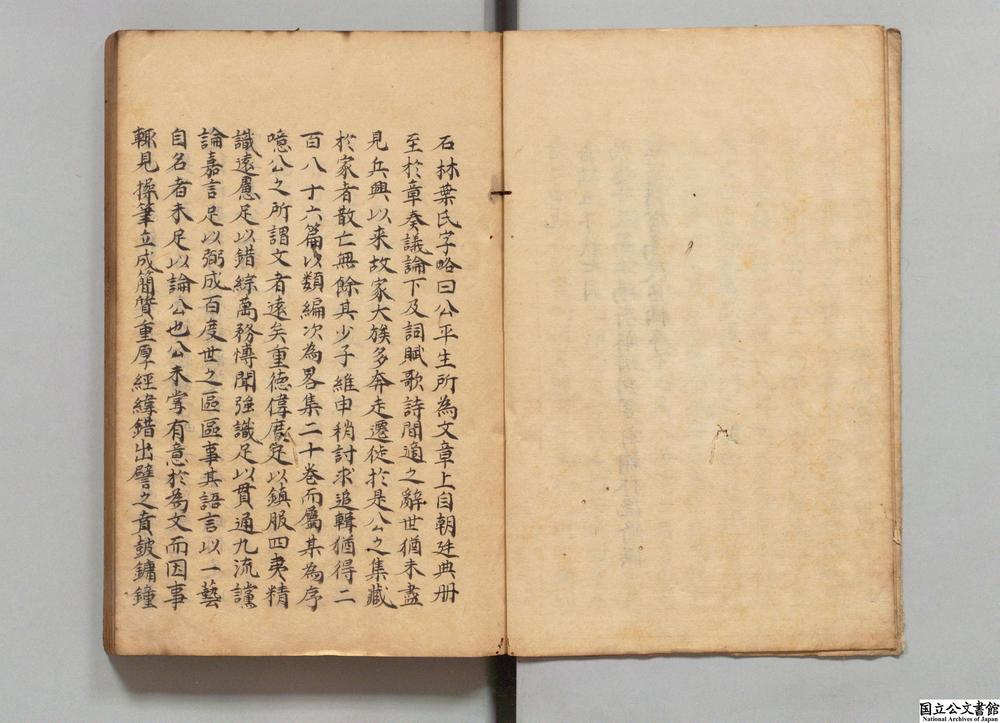 石林葉氏字略曰公平生所為文章上自朝廷典册
至於章奏議論下及詞賦歌詩閒適之辭世猶未盡
見兵興以来故家大族多奔走遷徙於是公之集藏
於家者散亡無餘其少子維申稍討求追輯猶得二
百八十六篇以類編次為畧集二十巻而屬某為序
噫公之所謂文者遠矣重徳偉度足以鎮服四夷精
識遠慮足以錯綜萬務愽聞強識足以貫通九流讜
論嘉言足以弼成百度世之區區事其語言以一藝
自名者未足以論公也公未甞有意於為文而因事
輒見操筆立成簡質重厚經緯錯出譬之賁皷鏞鐘
国立公文書館
National Archives of Japan